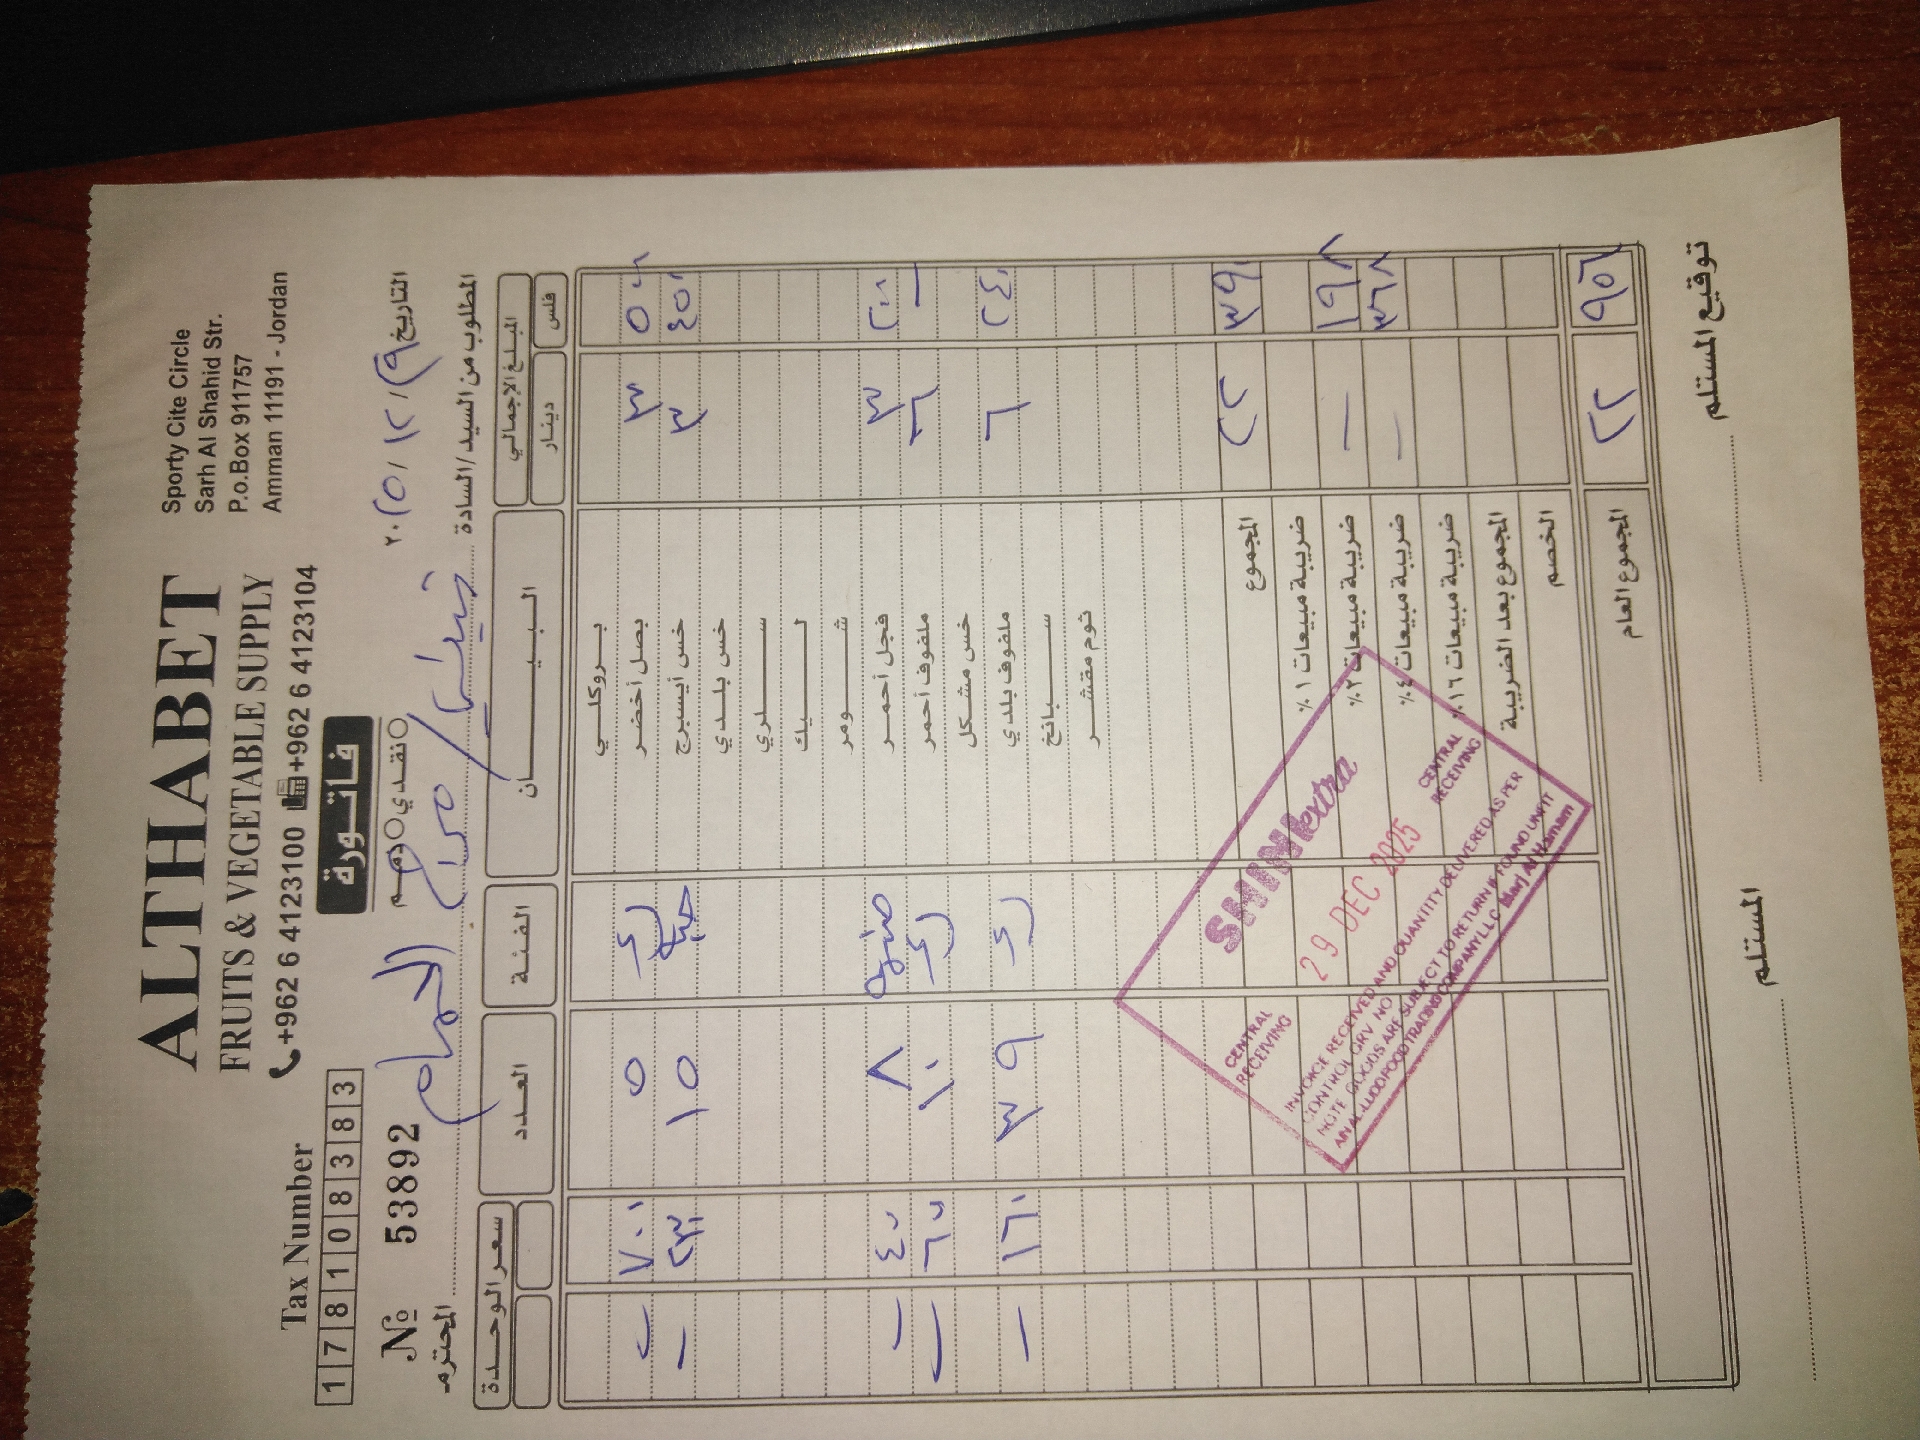 ALTHABET
FRUITS & VEGETABLE SUPPLY
+962 6 4123100 +962 6 4123104
Sporty Cite Circle
Sarh Al Shahid Str.
P.o.Box 911757
Amman 11191 - Jordan
Tax Number
1 7 8 1 0 8 3 8 3
فاتورة
نقدي ذمم
№ 53892
التاريخ ٢٩ / ١٢ / ٢٠٢٥
المطلوب من السيد/السادة
المحترم
المبلغ الإجمالي البيــــــان الفئة العدد سعر الوحدة
فلس دينار
بروكلي
بصل أخضر ٥ ٧٠٠
خس أيسبرج ٣ ٤٥٠ ١٥ ٢٣٠
خس بلدي
سلري
ليك
شومر
فجل أحمر ٣ ٢٠٠ ٨ ٤٠٠
ملفوف أحمر ٦ ١٠
خس مشكل
ملفوف بلدي ٦ ٢٤٠ ٣٩ ١٦٠
سبانخ
ثوم مقشر
المجموع ٢٢ ٣٩٠
ضريبة مبيعات ١٪
ضريبة مبيعات ٢٪ ١٩٨
ضريبة مبيعات ٤٪ ٣٦٨
ضريبة مبيعات ١٦٪
المجموع بعد الضريبة
الخصم
المجموع العام ٢٢ ٩٥٦
SHINI extra
CENTRAL RECEIVING
29 DEC 2025
CENTRAL RECEIVING
INVOICE RECEIVED AND QUANTITY DELIVERED AS PER
CONTROL GRV NO
NOTE GOODS ARE SUBJECT TO RETURN IF FOUND UNFIT
AL-LUDD FOOD TRADING COMPANY LLC Marj Al Hamam
المستلم
توقيع المستلم